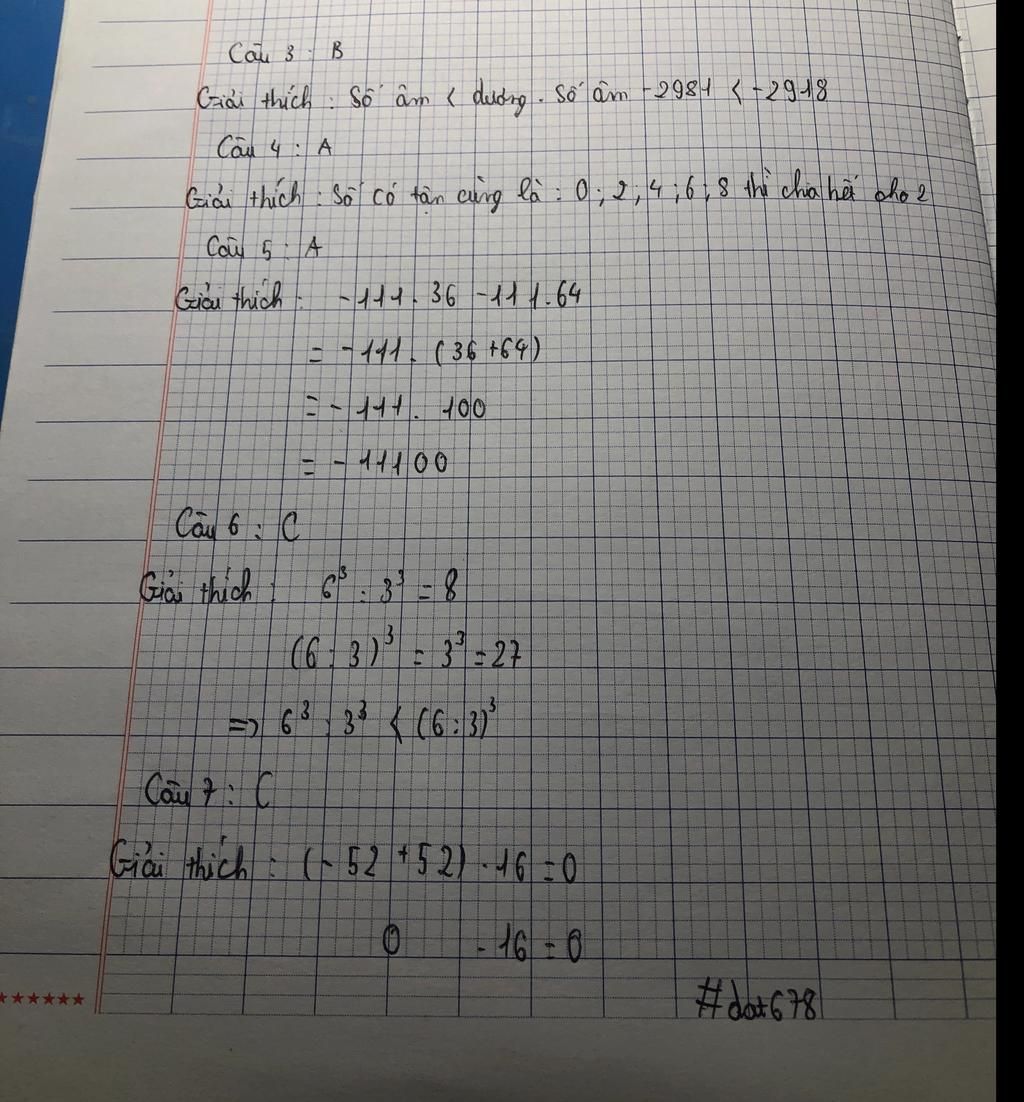 Câu 3 : B
Giải thích : Số âm < dương. Số âm -2981 < -2918
Câu 4 : A
Giải thích : Số có tận cùng là : 0 ; 2 ; 4 ; 6 ; 8 thì chia hết cho 2
Câu 5 : A
Giải thích : -111 . 36 -111 . 64
= -111 . (36 + 64)
= -111 . 100
= -11100
Câu 6 : C
Giải thích : 6³ : 3³ = 8
(6 : 3)³ = 3³ = 27
=> 6³ : 3³ < (6 : 3)³
Câu 7 : C
Giải thích : (-52 + 52) . 16 = 0
0 . 16 = 0
#dat678